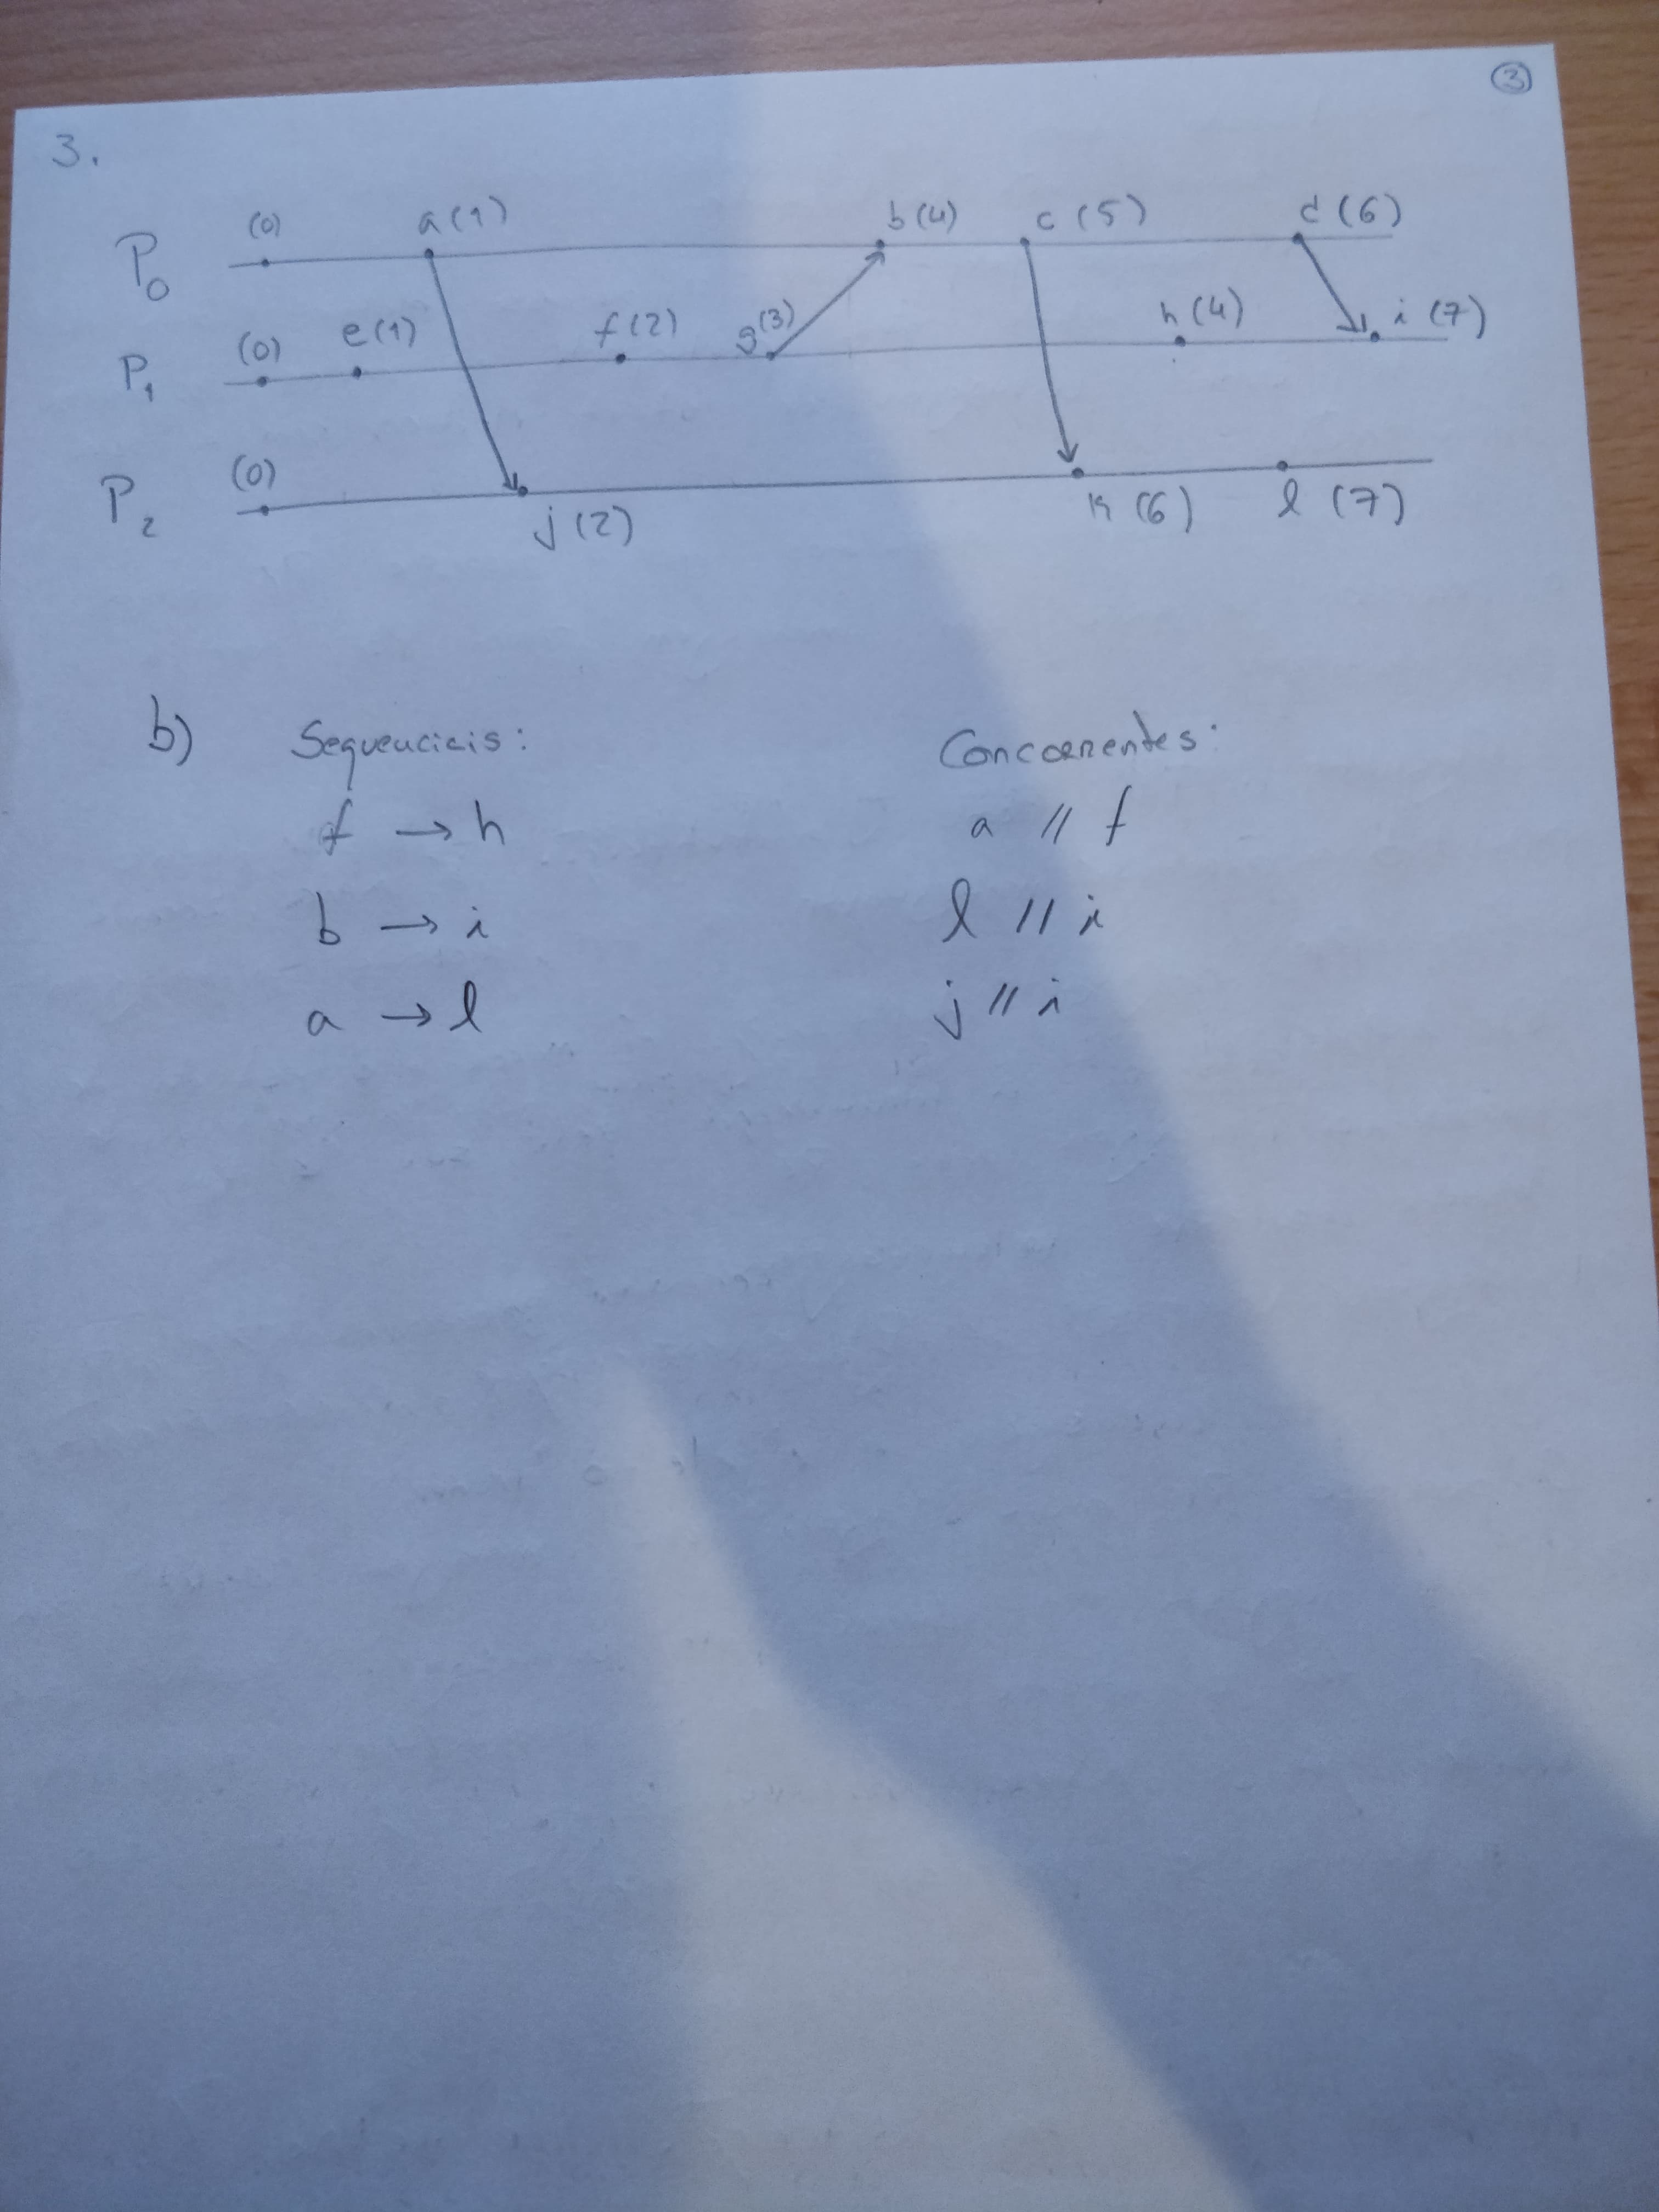 3
3.
P0 (0) a(1) b(4) c(5) d(6)
P1 (0) e(1) f(2) g(3) h(4) i(7)
P2 (0) j(2) k(6) l(7)
b) Sequenciais: Concorrentes:
f → h a // f
b → i l // i
a → l j // i